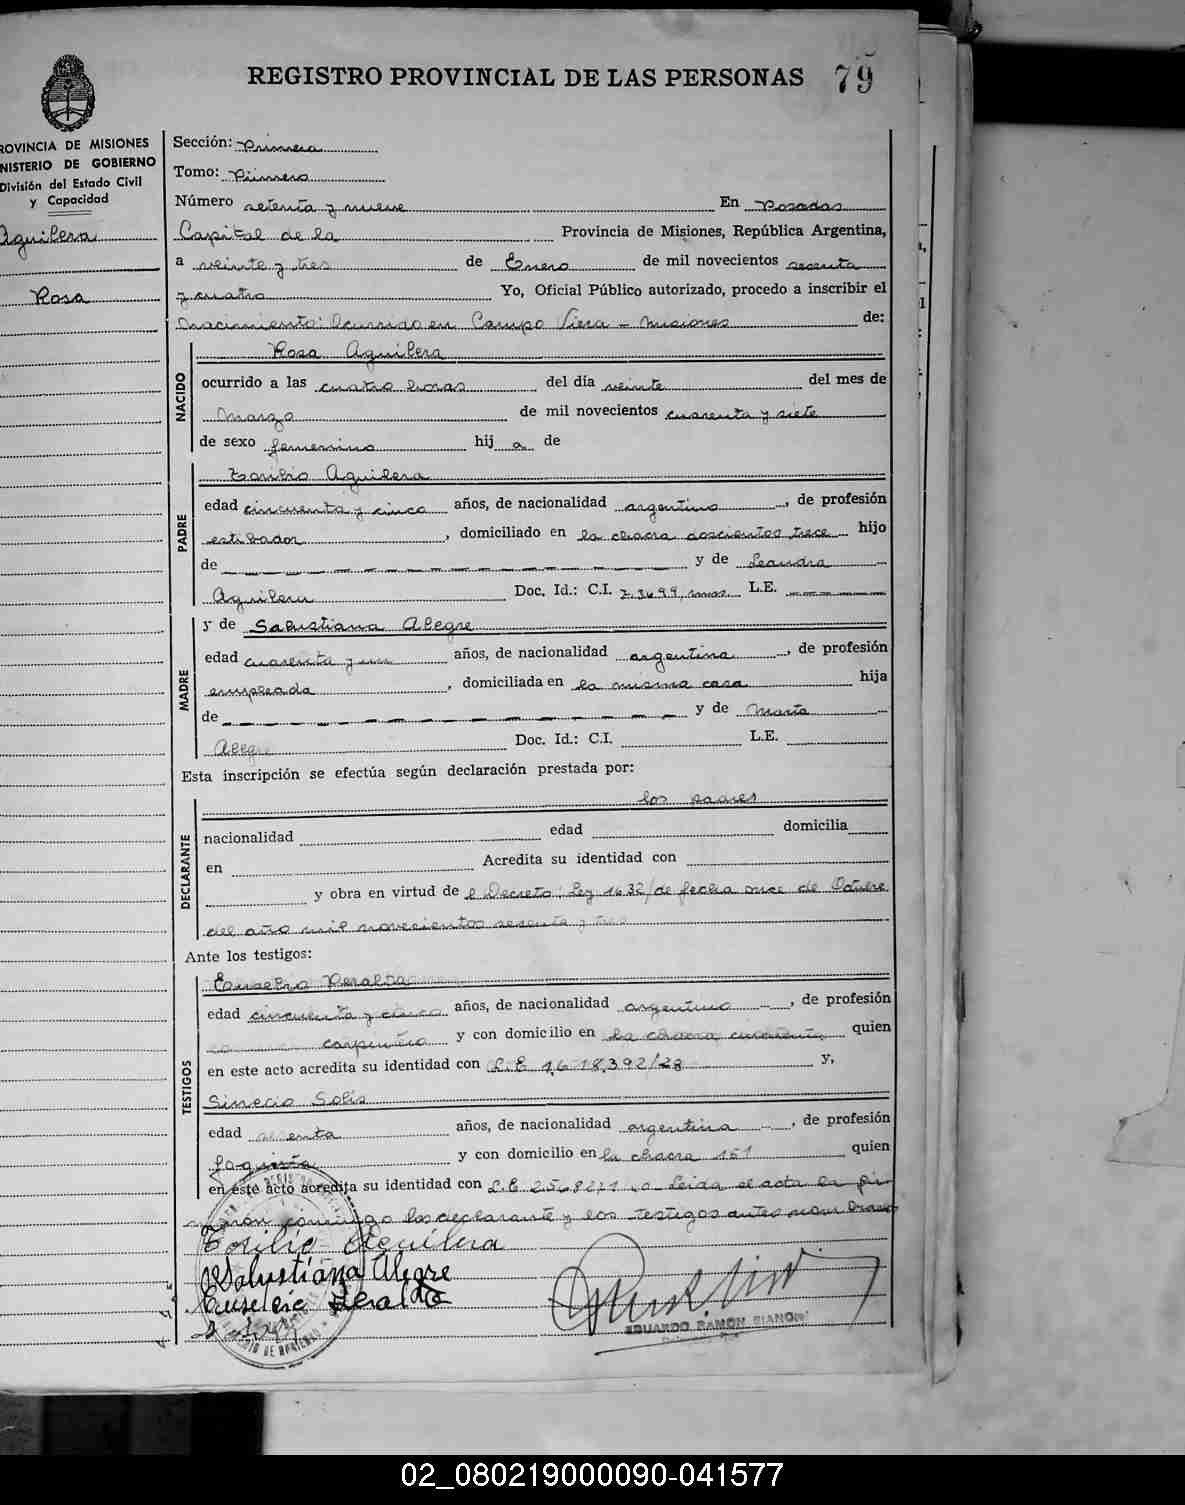 REGISTRO PROVINCIAL DE LAS PERSONAS 79
ROVINCIA DE MISIONES
NISTERIO DE GOBIERNO
División del Estado Civil
y Capacidad
Aguilera
Rosa
Sección: Primera
Tomo: Primero
Número setenta y nueve En Posadas
Capital de la Provincia de Misiones, República Argentina,
a veinte y tres de Enero de mil novecientos sesenta
y cuatro Yo, Oficial Público autorizado, procedo a inscribir el
nacimiento: Ocurrido en Campo Viera - Misiones de:
NACIDO
Rosa Aguilera
ocurrido a las cuatro horas del día veinte del mes de
Marzo de mil novecientos cuarenta y siete
de sexo femenino hij a de
PADRE
Toribio Aguilera
edad cincuenta y cinco años, de nacionalidad argentino, de profesión
estibador, domiciliado en la chacra doscientos trece hijo
de y de Leandra
Aguilera Doc. Id.: C.I. L.E.
MADRE
y de Salustiana Alegre
edad cuarenta y un años, de nacionalidad argentina, de profesión
empleada, domiciliada en la misma casa hija
de y de María
Alegre Doc. Id.: C.I. L.E.
Esta inscripción se efectúa según declaración prestada por:
los padres
DECLARANTE
nacionalidad edad domicilia
en Acredita su identidad con
y obra en virtud de l Decreto; Ley 1632/de fecha once de Octubre
del año mil novecientos sesenta y tres
Ante los testigos:
TESTIGOS
Eusebio Peralta
edad cincuenta y cinco años, de nacionalidad argentino, de profesión
carpintero y con domicilio en la chacra quien
en este acto acredita su identidad con L.E 1,618,392/28 y,
Sinecio Solis
edad años, de nacionalidad argentina, de profesión
y con domicilio en la chacra 151 quien
en este acto acredita su identidad con L.E Leida el acta la fir
maron conmigo los declarante y los testigos antes nombrados
Toribio Aguilera
Salustiana Alegre
Eusebio Peralta
EDUARDO RAMON
02_080219000090-041577